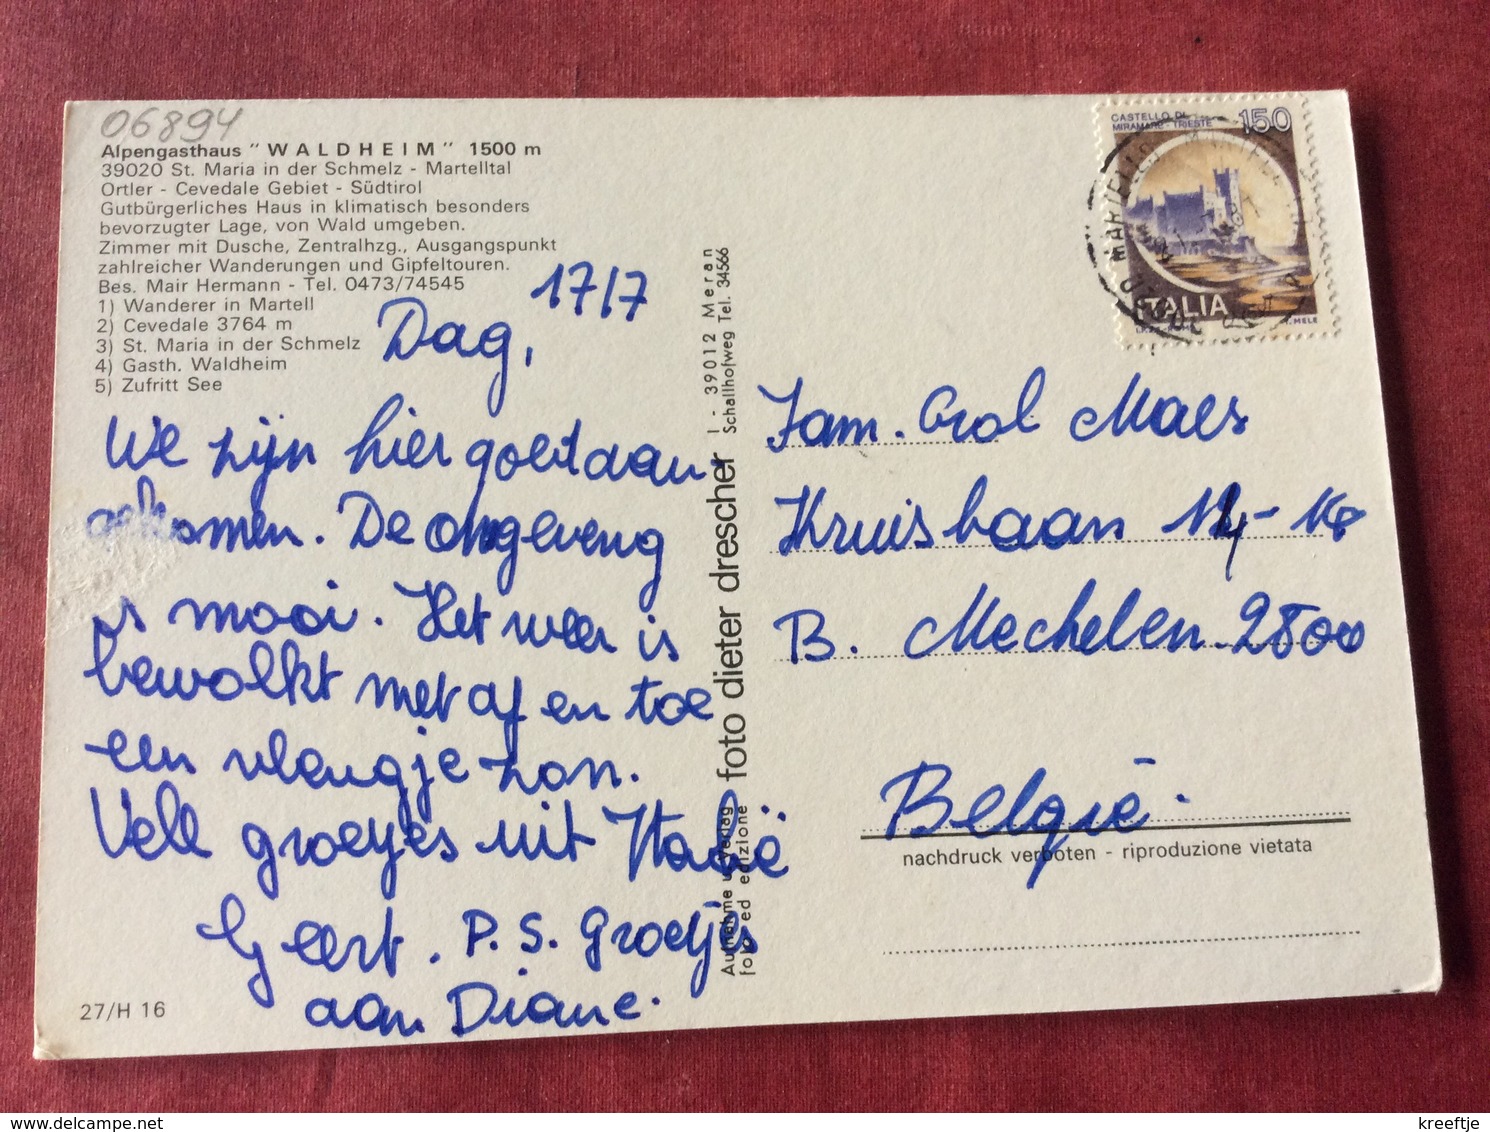 06894
Alpengasthaus "WALDHEIM" 1500 m
39020 St. Maria in der Schmelz - Martelltal
Ortler - Cevedale Gebiet - Südtirol
Gutbürgerliches Haus in klimatisch besonders
bevorzugter Lage, von Wald umgeben.
Zimmer mit Dusche, Zentralhzg., Ausgangspunkt
zahlreicher Wanderungen und Gipfeltouren.
Bes. Mair Hermann - Tel. 0473/74545
1) Wanderer in Martell
2) Cevedale 3764 m
3) St. Maria in der Schmelz
4) Gasth. Waldheim
5) Zufritt See
17/7
Dag,
We zijn hier goed aan-
gekomen. De omgeveng
is mooi. Het weer is
bewolkt met af en toe
een vleugje zon.
Vele groetjes uit Italië
Geert. P.S. Groetjes
aan Diane.
27/H 16
Aufnahme u. Verlag
foto ed edizione
foto dieter drescher
I - 39012 Meran
Schallhofweg Tel. 34566
CASTELLO DI
MIRAMARE - TRIESTE
150
ITALIA
MELE
MARTELLO
Fam. Crol Maes
Kruisbaan
B. Mechelen 2800
België.
nachdruck verboten - riproduzione vietata
kreeftje